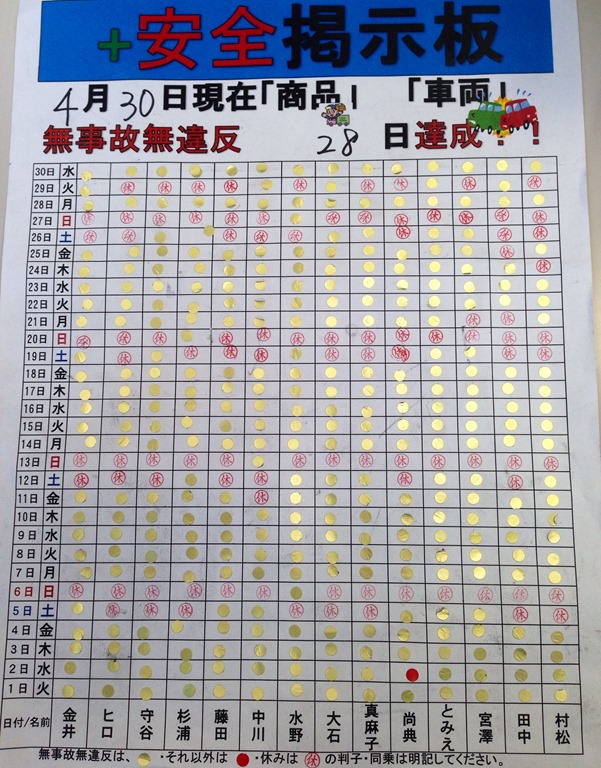 +安全掲示板
4月30日現在「商品」 「車両」
無事故無違反 28 日達成!!
30日 水
29日 火 休 休 休 休 休 休 休 休 休
28日 月
27日 日 休 休 休 休 休 休 休 休 休 休 休 休 休
26日 土 休 休 休 休 休 休 休 休
25日 金 休
24日 木 休
23日 水
22日 火
21日 月 休 休
20日 日 休 休 休 休 休 休 休 休 休 休 休 休
19日 土 休 休 休 休 休 休 休 休 休
18日 金
17日 木
16日 水
15日 火
14日 月
13日 日 休 休 休 休 休 休 休 休 休 休 休 休 休
12日 土 休 休 休 休 休 休 休 休
11日 金 休
10日 木
9日 水
8日 火
7日 月
6日 日 休 休 休 休 休 休 休 休 休 休 休 休 休 休
5日 土 休 休 休 休 休 休 休 休
4日 金
3日 木
2日 水
1日 火
日付/名前 金井 ヒロ 守谷 杉浦 藤田 中川 水野 大石 真麻子 尚典 とみえ 宮澤 田中 村松
無事故無違反は、●・それ以外は●・休みは㊡の判子・同乗は明記してください。